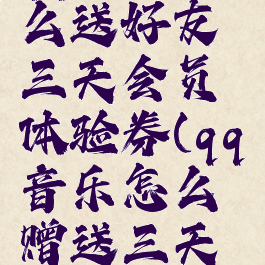 么送好友
三天会员
体验券(qq
音乐怎么
赠送三天